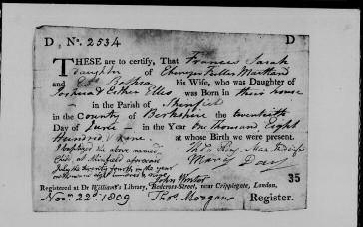 D, No. 2534 D
THESE are to certify, That Frances Sarah
daughter of Ebenezer Fuller Maitland
and Bethea his Wife, who was Daughter of
Joshua & Esther Ellis was Born in their house
in the Parish of Shinfield
in the County of Berkshire the twentieth
Day of June in the Year One thousand Eight
Hundred & nine at whose Birth we were present.
Baptized the above named
Child, at Shinfield aforesaid Mary Davis
July the twenty fourth, in the year
eight hundred & nine
John Winter 35
Registered at Dr Williams's Library, Redcross-Street, near Cripplegate, London.
Novr 22d 1809 Thos Morgan Register.